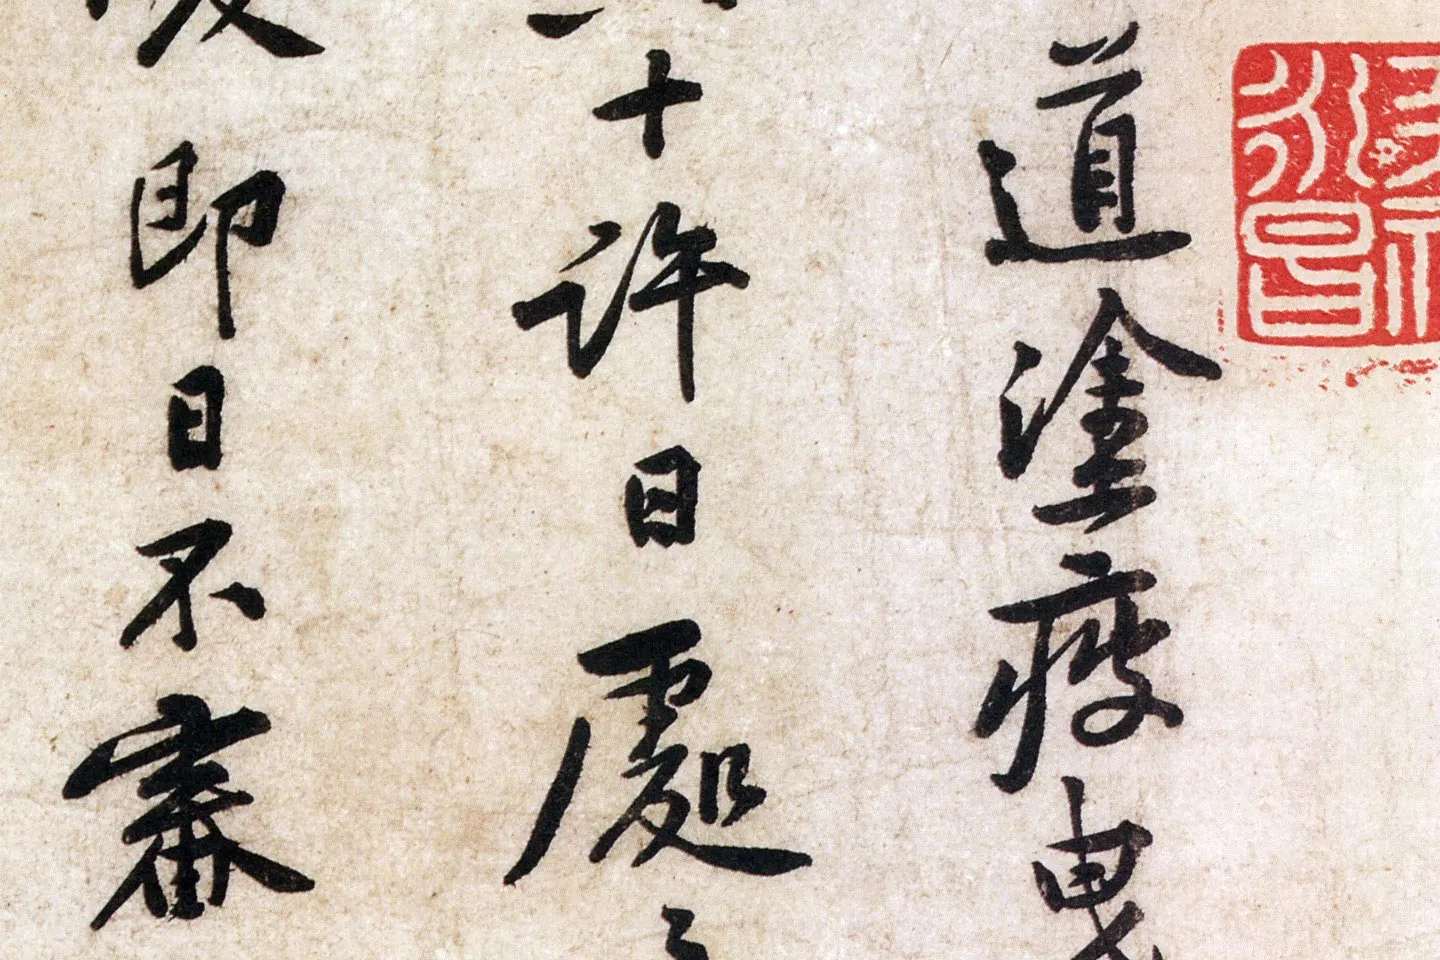 道塗疲曳
十許日處之
即日不審